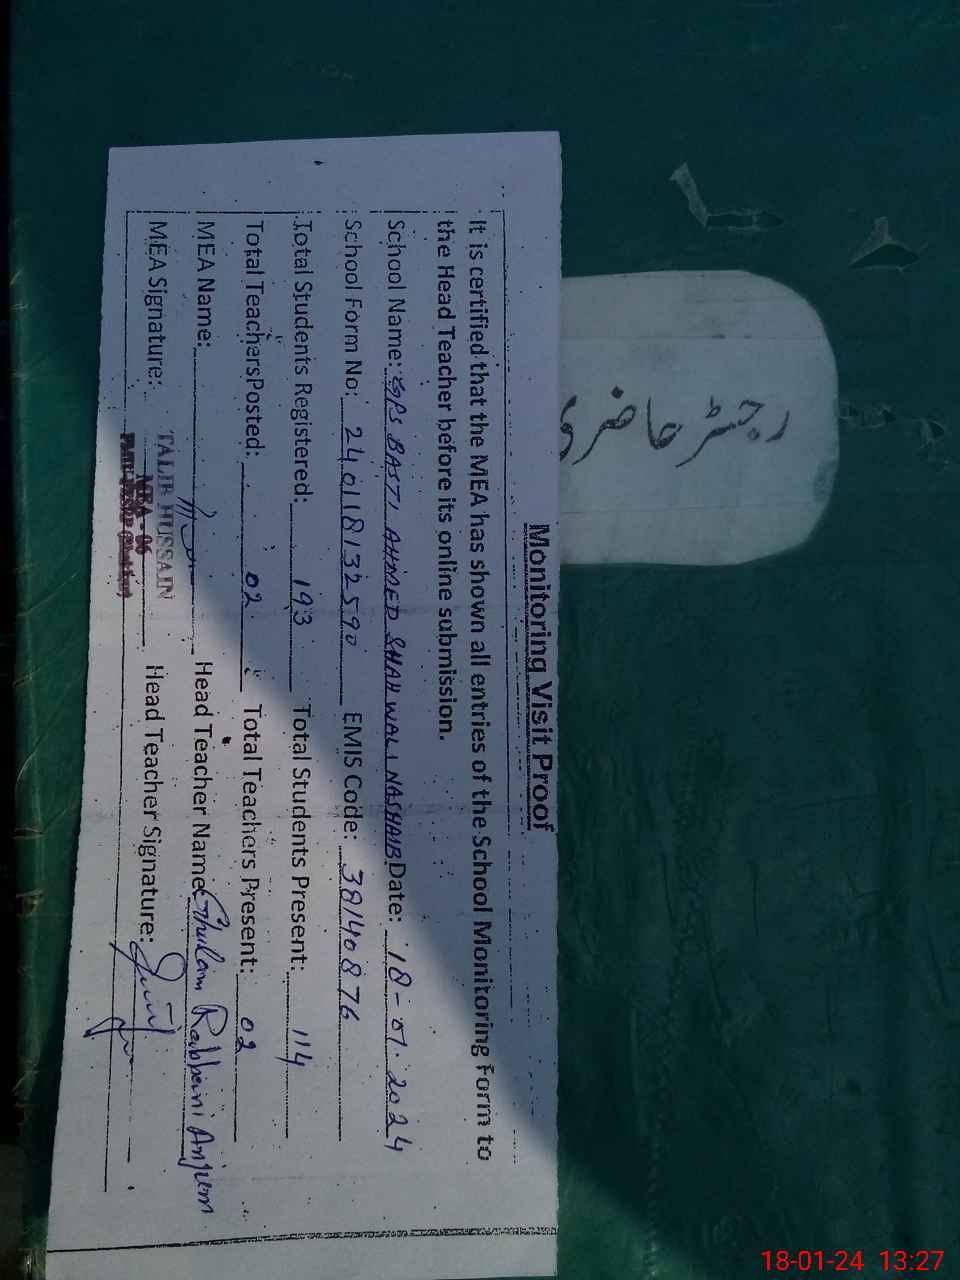 رجسٹر حاضری
Monitoring Visit Proof
It is certified that the MEA has shown all entries of the School Monitoring Form to
the Head Teacher before its online submission.
School Name: GPS BASTI AHMED SHAH WALI NASHAIB Date: 18-01-2024
School Form No: 240118132590 EMIS Code: 38140876
Total Students Registered: 193 Total Students Present: 114
Total TeachersPosted: 02 Total Teachers Present: 02
MEA Name: Head Teacher Name: Ghulam Rabbani Anjum
MEA Signature: Head Teacher Signature:
TALIB HUSSAIN
MEA - 06
18-01-24 13:27